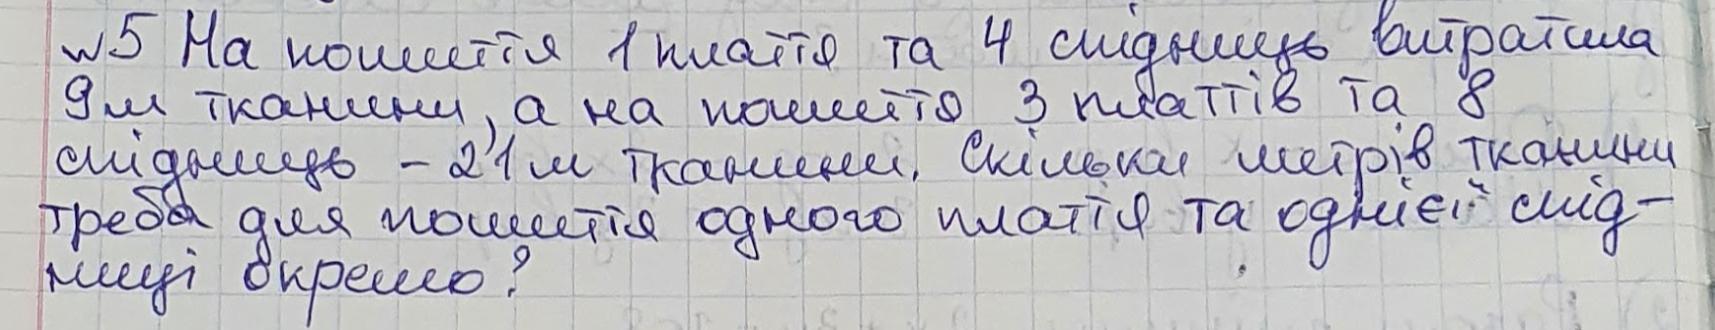 №5 На пошиття 1 плаття та 4 спідниць витратила
9м тканини, а на пошиття 3 платтів та 8
спідниць – 21м тканини. Скільки метрів тканини
треба для пошиття одного плаття та однієї спід-
ниці окремо?